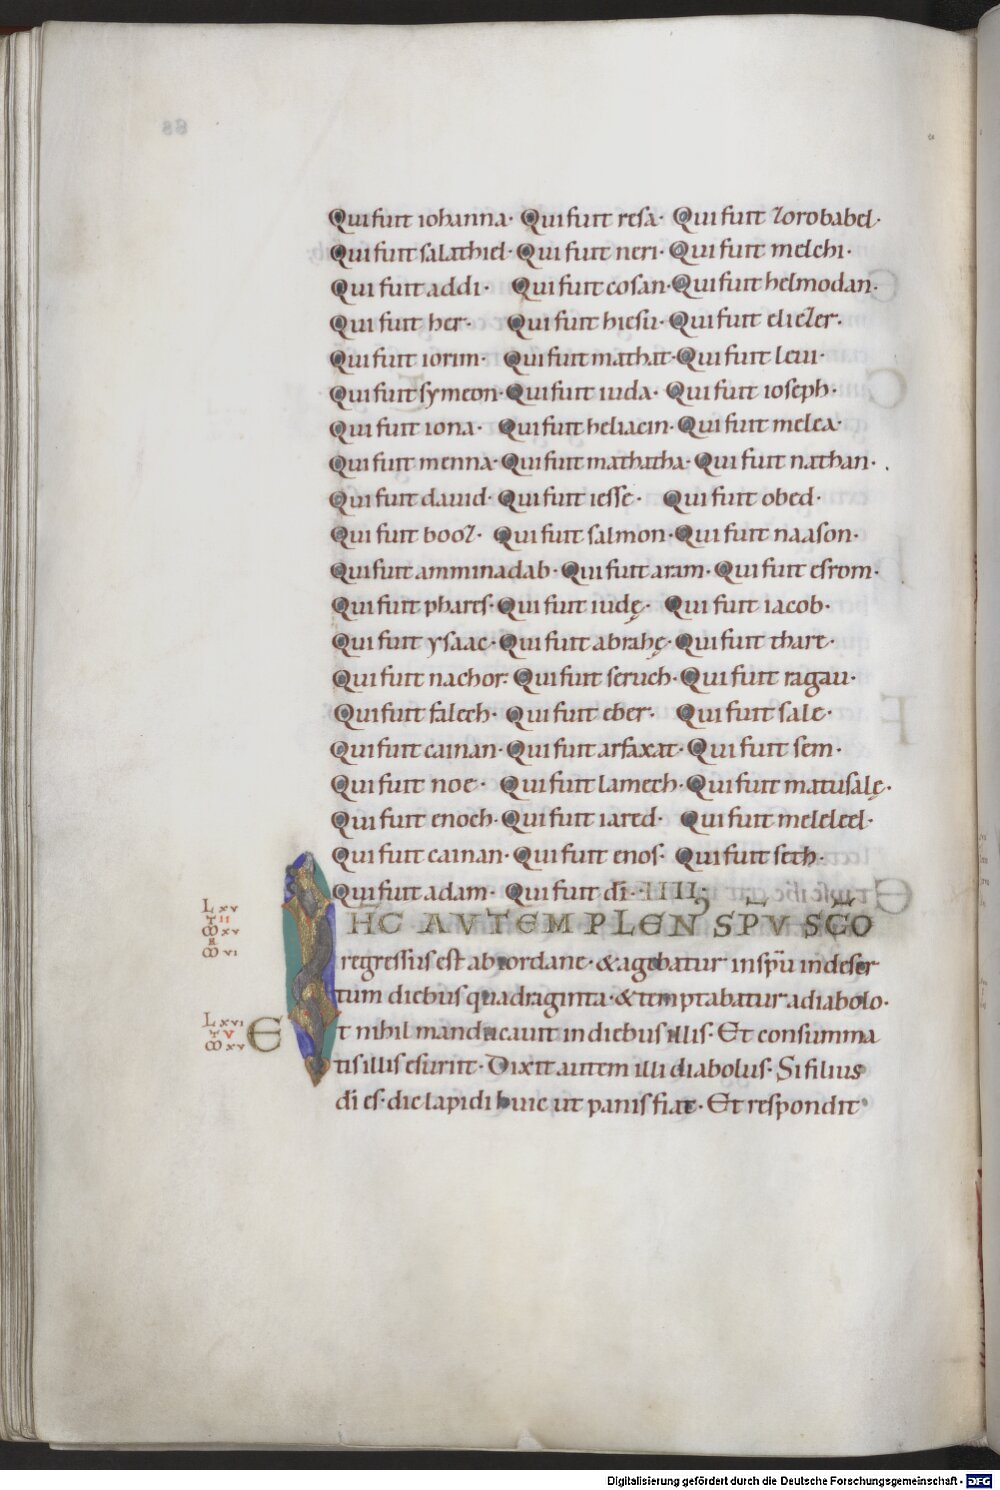 Qui fuit iohanna· Qui fuit resa· Qui fuit zorobabel·
Qui fuit salathiel· Qui fuit neri· Qui fuit melchi·
Qui fuit addi· Qui fuit cosan· Qui fuit helmodan·
Qui fuit her· Qui fuit hiesu· Qui fuit eliezer·
Qui fuit iorim· Qui fuit mathat· Qui fuit leui·
Qui fuit symeon· Qui fuit iuda· Qui fuit ioseph·
Qui fuit iona· Qui fuit heliacin· Qui fuit melea·
Qui fuit menna· Qui fuit mathatha· Qui fuit nathan·
Qui fuit dauid· Qui fuit iesse· Qui fuit obed·
Qui fuit booz· Qui fuit salmon· Qui fuit naason·
Qui fuit amminadab· Qui fuit aram· Qui fuit esrom·
Qui fuit phares· Qui fuit iudę· Qui fuit iacob·
Qui fuit ysaac· Qui fuit abrahę· Qui fuit thare·
Qui fuit nachor· Qui fuit seruch· Qui fuit ragau·
Qui fuit falech· Qui fuit eber· Qui fuit sale·
Qui fuit cainan· Qui fuit arfaxat· Qui fuit sem·
Qui fuit noe· Qui fuit lamech· Qui fuit matusalę·
Qui fuit enoch· Qui fuit iared· Qui fuit meleleel·
Qui fuit cainan· Qui fuit enos· Qui fuit seth·
Qui fuit adam· Qui fuit dī· IIII;
L xv
I II
M xv
M vi
IHC AUTEM PLEN SPU SCO
regressus est ab iordane· & agebatur in spū in deser
tum diebus quadraginta· & temptabatur a diabolo·
L xvi
I V
M xv
Et nihil manducauit in diebus illis· Et consumma
tis illis esuriit· Dixit autem illi diabolus· Si filius
dī es· dic lapidi huic ut panis fiat· Et respondit
Digitalisierung gefördert durch die Deutsche Forschungsgemeinschaft - DFG